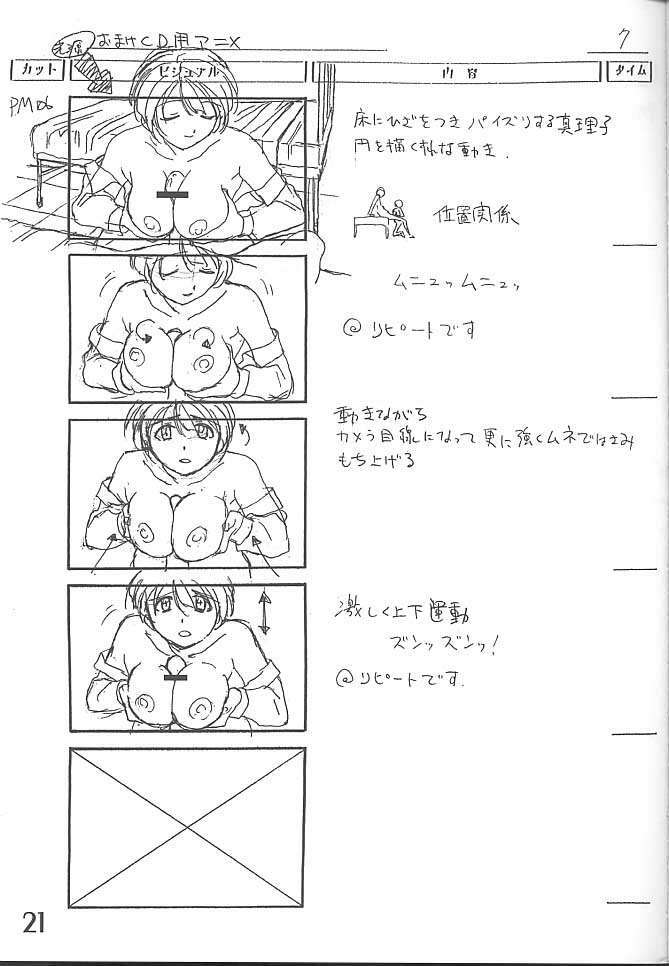 光源 おまけCD用アニメ 7
カット ビジュアル 内容 タイム
PM06
床にひざをつき パイズリする真理子
円を描く様な動き.
位置関係
ムニュッムニュッ
@リピートです
動きながら
カメラ目線になって更に強くムネではさみ
もち上げる
激しく上下運動
ズンッズンッ!
@リピートです.
21